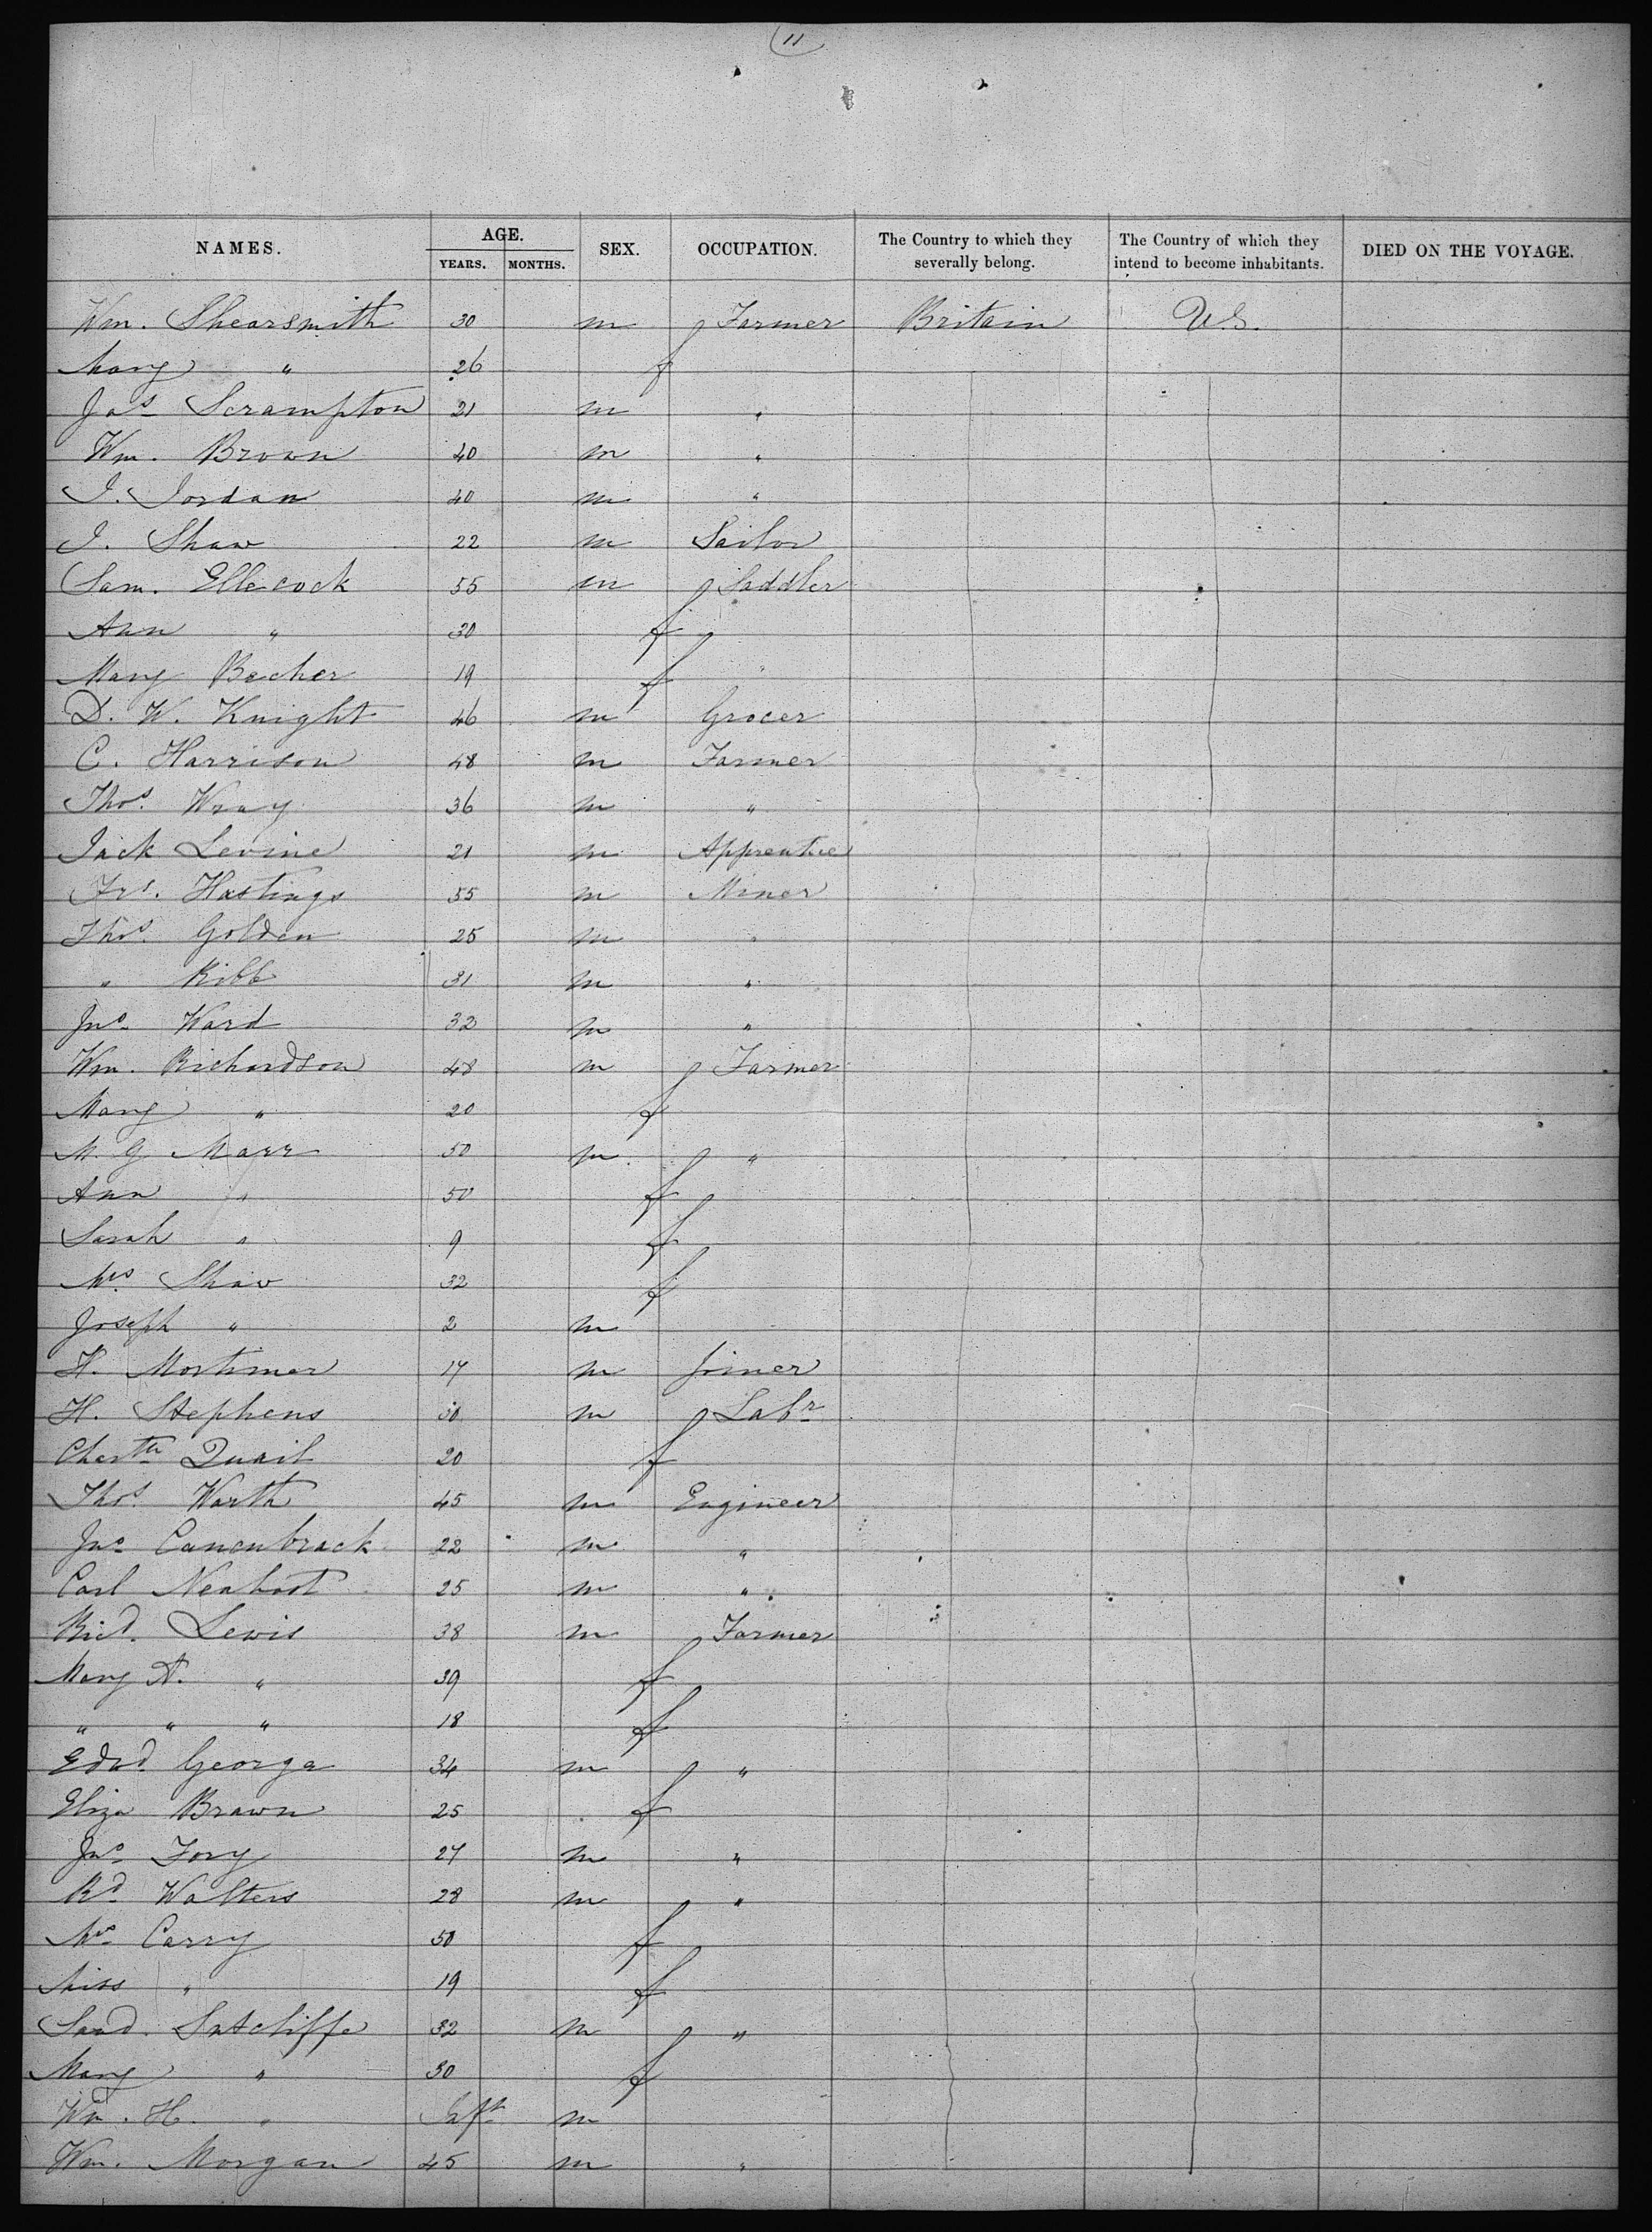 11
NAMES. AGE. YEARS. MONTHS. SEX. OCCUPATION. The Country to which they severally belong. The Country of which they intend to become inhabitants. DIED ON THE VOYAGE.
Wm. Shearsmith 30 m Farmer Britain U.S.
Mary " 26 f
Jas Scrampton 21 m "
Wm. Brown 40 m "
J. Jordan 40 m "
J. Shaw 22 m Sailor
Sam. Ellecock 55 m Saddler
Ann " 30 f
Mary Becher 19 f "
D. W. Knight 46 m Grocer
C. Harrison 48 m Farmer
Thos. Wray 36 m "
Jack Levine 21 m Apprentice
Frs. Hastings 55 m Miner
Thos. Golden 25 m "
" Kibb 31 m "
Jno. Ward 32 m "
Wm. Richardson 48 m Farmer
Mary " 20 f
M. G Marr 50 m "
Ann " 50 f
Sarah " 9 f
Mrs Shaw 32 f
Joseph " 2 m
H. Mortimer 17 m Joiner
H. Stephens 30 m Labr
Chartte Quail 20 f
Thos. Warth 45 m Engineer
Jno Canenbrack 22 m "
Carl Neahart 25 m "
Ricd. Lewis 38 m Farmer
Mary A. " 39 f
" " " 18 f
Edwd. George 34 m "
Eliza Brawn 25 f
Jno. Fory 27 m "
Rd Walters 28 m "
Mrs Carry 50 f
Miss " 19 f
Saml. Sutcliffe 32 m "
Mary " 30 f
Wm. H. " Inft m
Wm. Morgan 45 m "